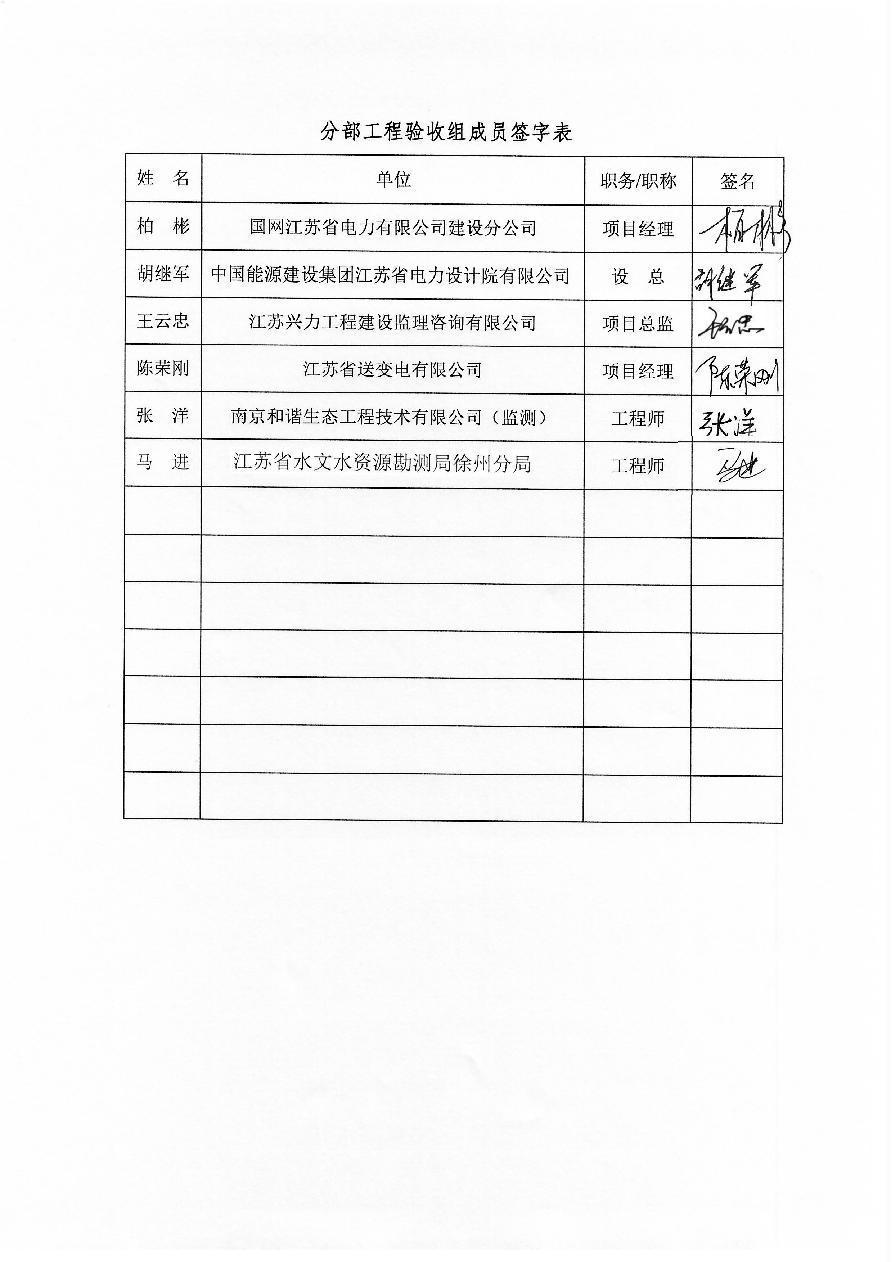 分部工程验收组成员签字表
姓 名 单位 职务/职称 签名
柏 彬 国网江苏省电力有限公司建设分公司 项目经理 柏彬
胡继军 中国能源建设集团江苏省电力设计院有限公司 设 总 胡继军
王云忠 江苏兴力工程建设监理咨询有限公司 项目总监
陈荣刚 江苏省送变电有限公司 项目经理 陈荣刚
张 洋 南京和谐生态工程技术有限公司（监测） 工程师 张洋
马 进 江苏省水文水资源勘测局徐州分局 工程师 马进